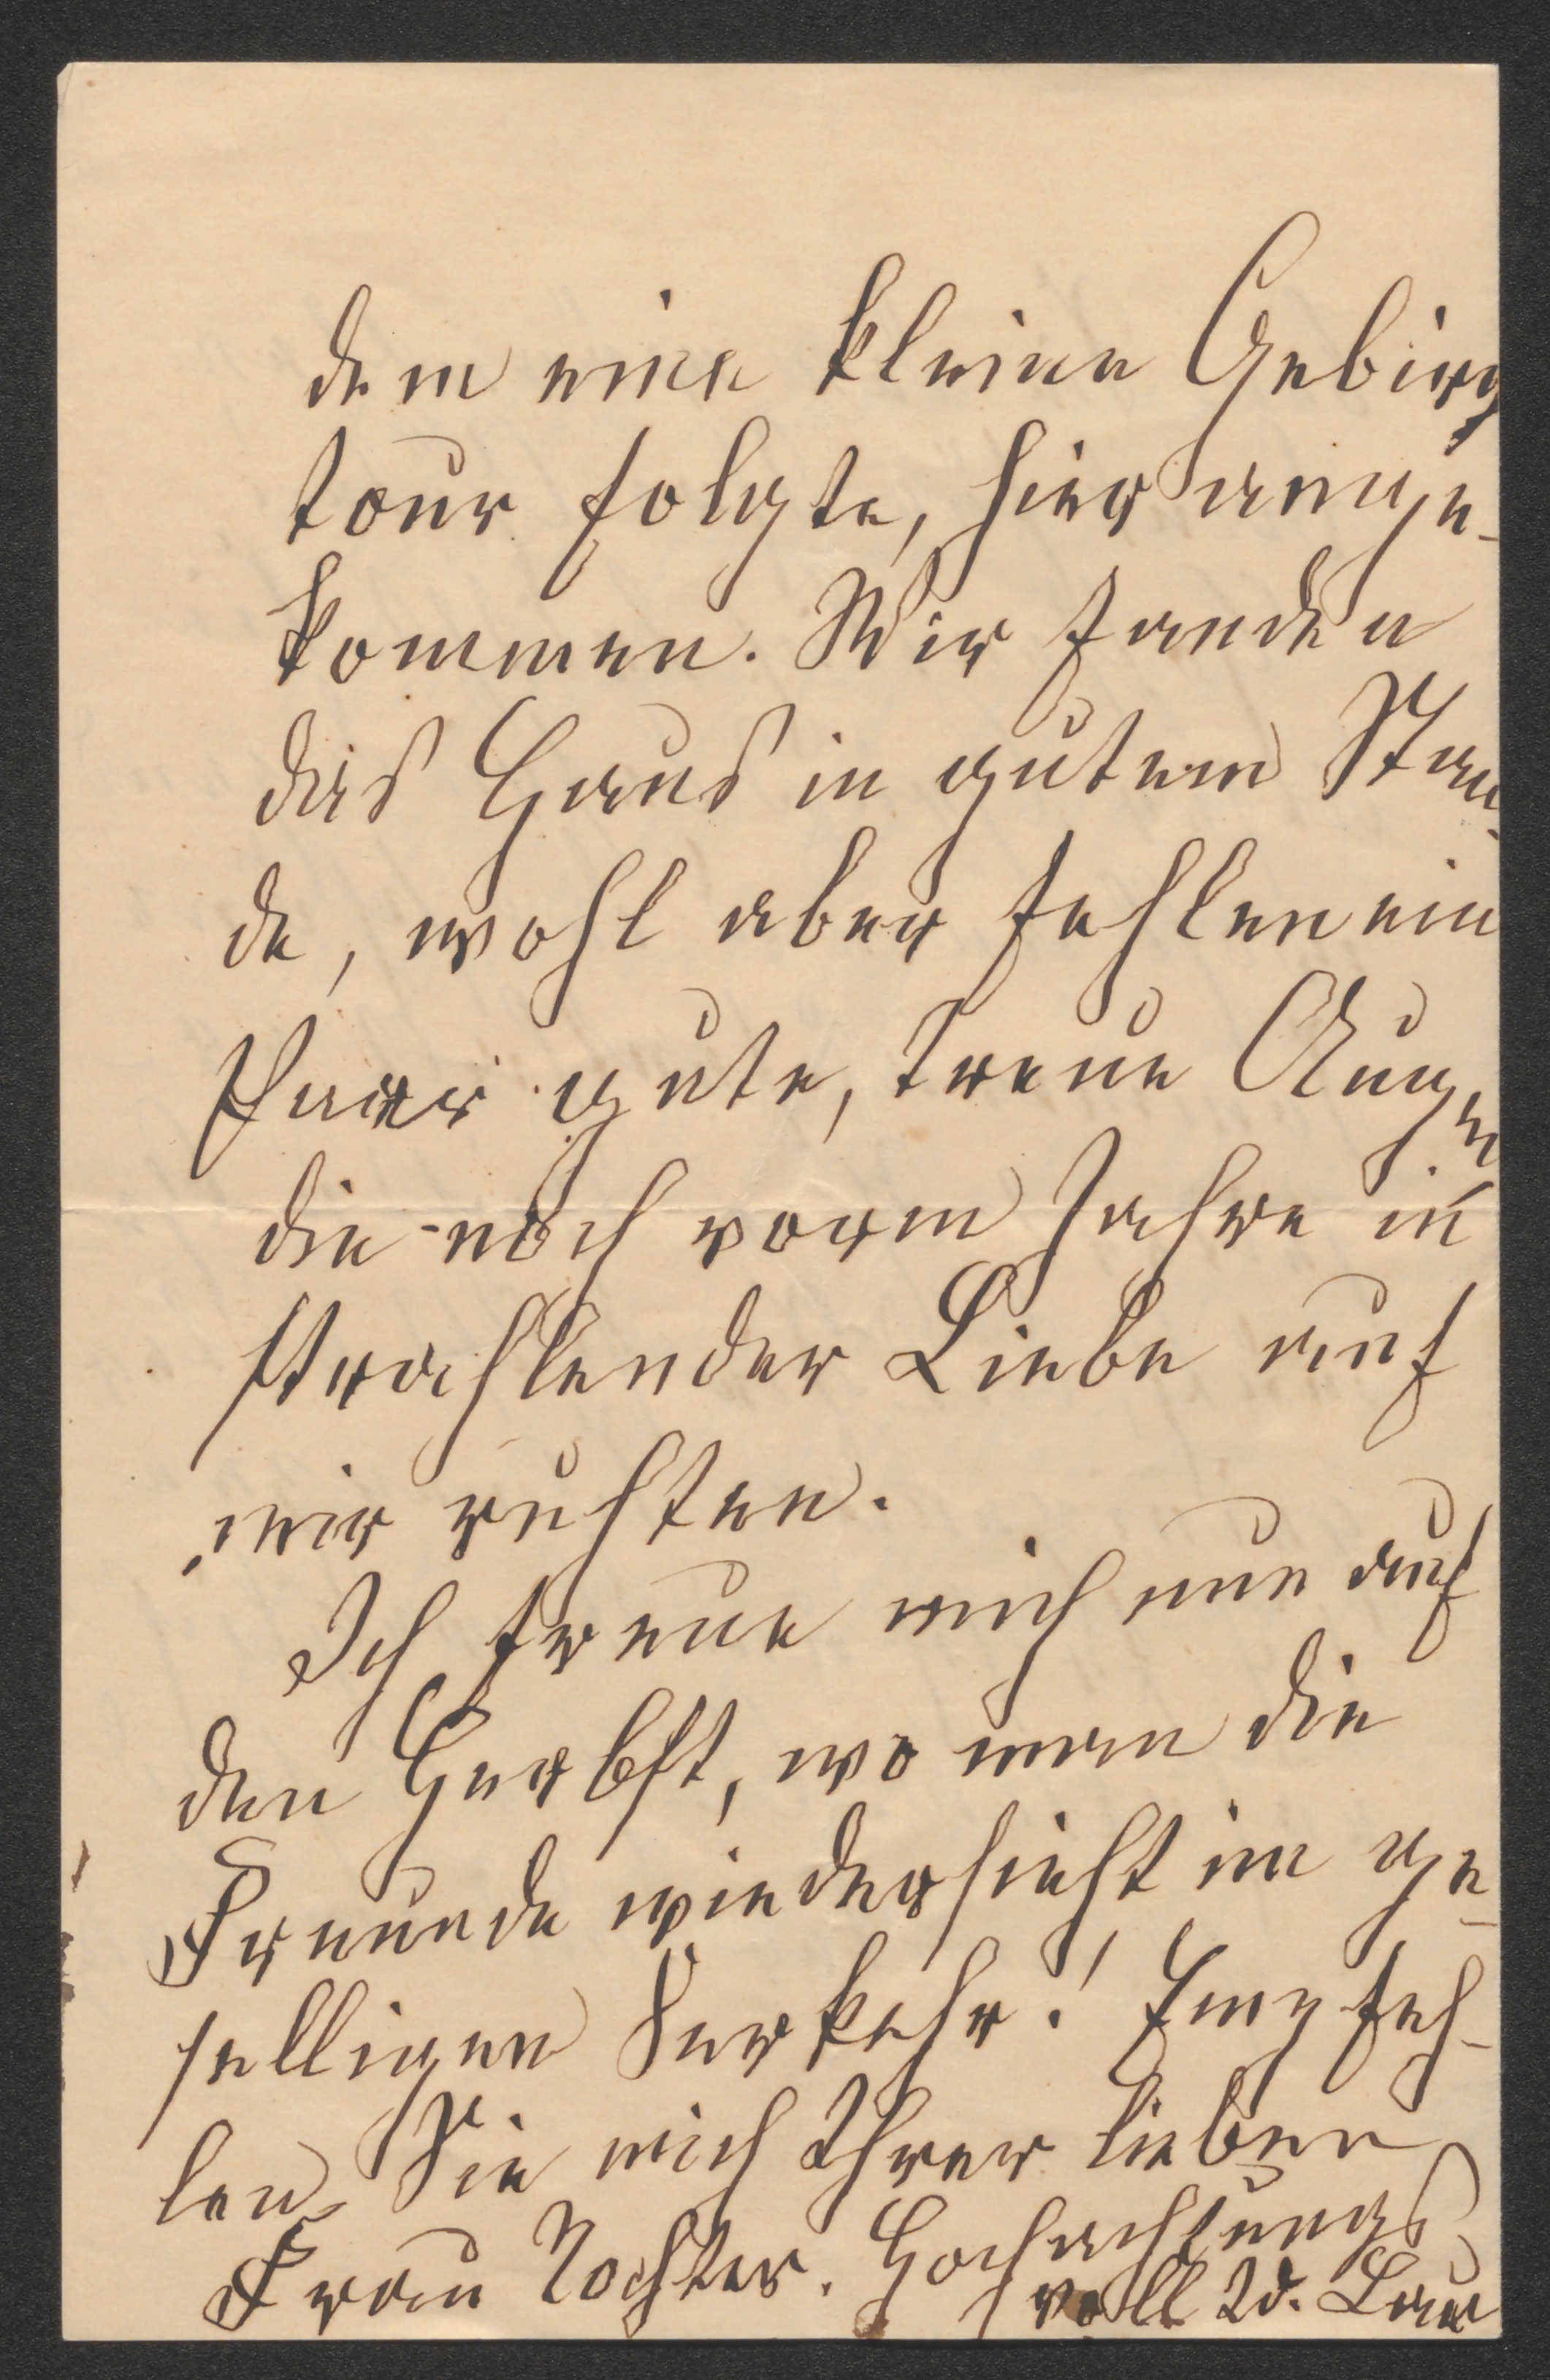 dem eine kleine Gebirgs
tour folgte, hier ange-
kommen. Wir fanden
das Haus in gutem Stan-
de, wohl aber fehlen ein
Paar gute, treue Augen
die noch vorm Jahre in
strahlender Liebe auf
mir ruhten.
Ich freue mich nun auf
den Herbst, wo man die
Freunde wiedersieht im ge-
selligen Verkehr! Empfeh-
len Sie mich Ihrer lieben
Frau Tochter. Hochachtungs
voll